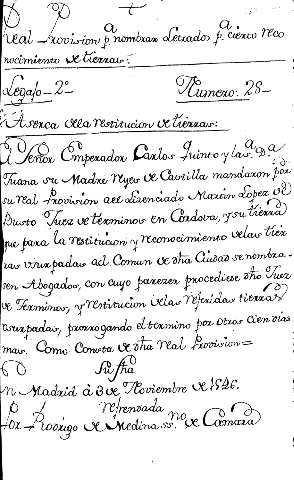 Real Provision pª nombrar Letrados pª cierto reco
nocimiento de tierras:
Legajo - 2º Numero: 28-
Aserca dela restitucion de tierras:
El Señor Emperador Carlos Quinto y la Sª. Dª.
Juana su Madre Reyes de Castilla mandaron por
su real Provision al Licenciado Martin Lopez de
Busto Juez de terminos en Cordova, y su tierra
que para la restitucion y reconocimiento de las tier
ras usurpadas al Comun de dha Ciudad se nombra-
sen Abogados, con cuyo parezer procediese dho Juez
de Terminos, y restitucion de las referidas tierras
usurpadas, prorrogando el termino por otros cien dias
mas. Como Consta de dha real Provision=
Su fha
en Madrid à 3 de Noviembre de 1526.
refrendada
por - Rodrigo de Medina ss.no de Camara